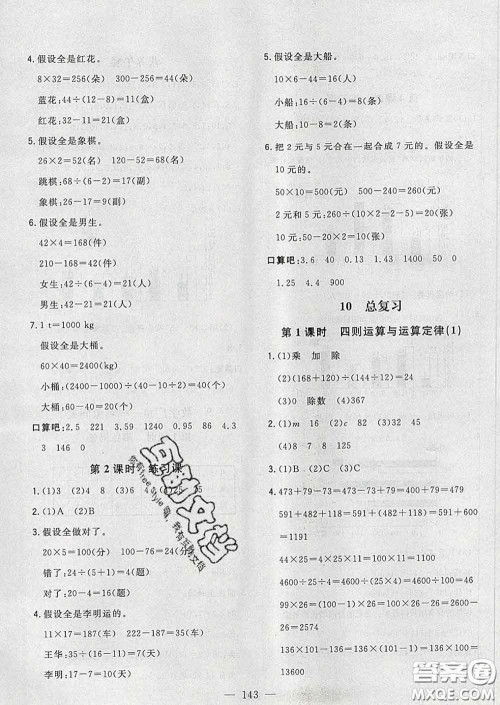 4. 假设全是红花。
8×32=256(朵) 300-256=44(朵)
蓝花:44÷(12-8)=11(盒)
红花:32-11=21(盒)
5. 假设全是象棋。
26×2=52(名) 120-52=68(名)
跳棋:68÷(6-2)=17(副)
象棋:26-17=9(副)
6. 假设全是男生。
42×4=168(件)
210-168=42(件)
女生:42÷(6-4)=21(人)
男生:42-21=21(人)
7. 1 t=1000 kg
假设全是大桶。
小桶:(2400-1000)÷(60-25)=40(个)
大桶:60-40=20(个)
口算吧:2.5 221 3.59 1240 0.95 86 4.3
3 146 0
第 2 课时 练习课
1. (1)3 (2)4 8 (3)6 5
2. (1)A (2)B
3. 假设全做对了。
20×5=100(分) 100-76=24(分)
错了:24÷(5+1)=4(题)
对了:20-4=16(题)
4. 假设全是李明运的。
11×17=187(车) 222-187=35(车)
王华:35÷(16-11)=7(天)
李明:17-7=10(天)
5. 假设全是大船。
10×6-44=16(人)
小船:16÷(6-4)=8(条)
大船:10-8=2(条)
6. 把 2 元与 5 元合在一起合成 7 元的。假设全是
10 元的。
50×10=500(元) 500-240=260(元)
2 元和 5 元:260÷(10×2-7)=20(张)
10 元:50-20×2=10(张)
口算吧:3.6 40 0.13 1400 1.48 50 0
1.25 4.4 900
10 总复习
第 1 课时 四则运算与运算定律(1)
1. (1)乘 加 除
(2)(168+120)÷(144÷12)=24
(3)0 除数 (4)367
2. (1)m 16 (2)c (3)32 45
(4)8 7 8 (5)100 15
3. (1)B (2)C (3)A
4. 473+79-63=473-63+79=410+79=489
582+591+418=582+418+591=1000+
591=1591
24×25=6×(4×25)=6×100=600
4600÷25÷4=4600÷(25×4)=4600÷
100=46
57×62-57×16=57×(62-16)=57×46=
2622
136×101-136=136×(101-1)=136×100=
13600
143
答案圈
MXQE.COM